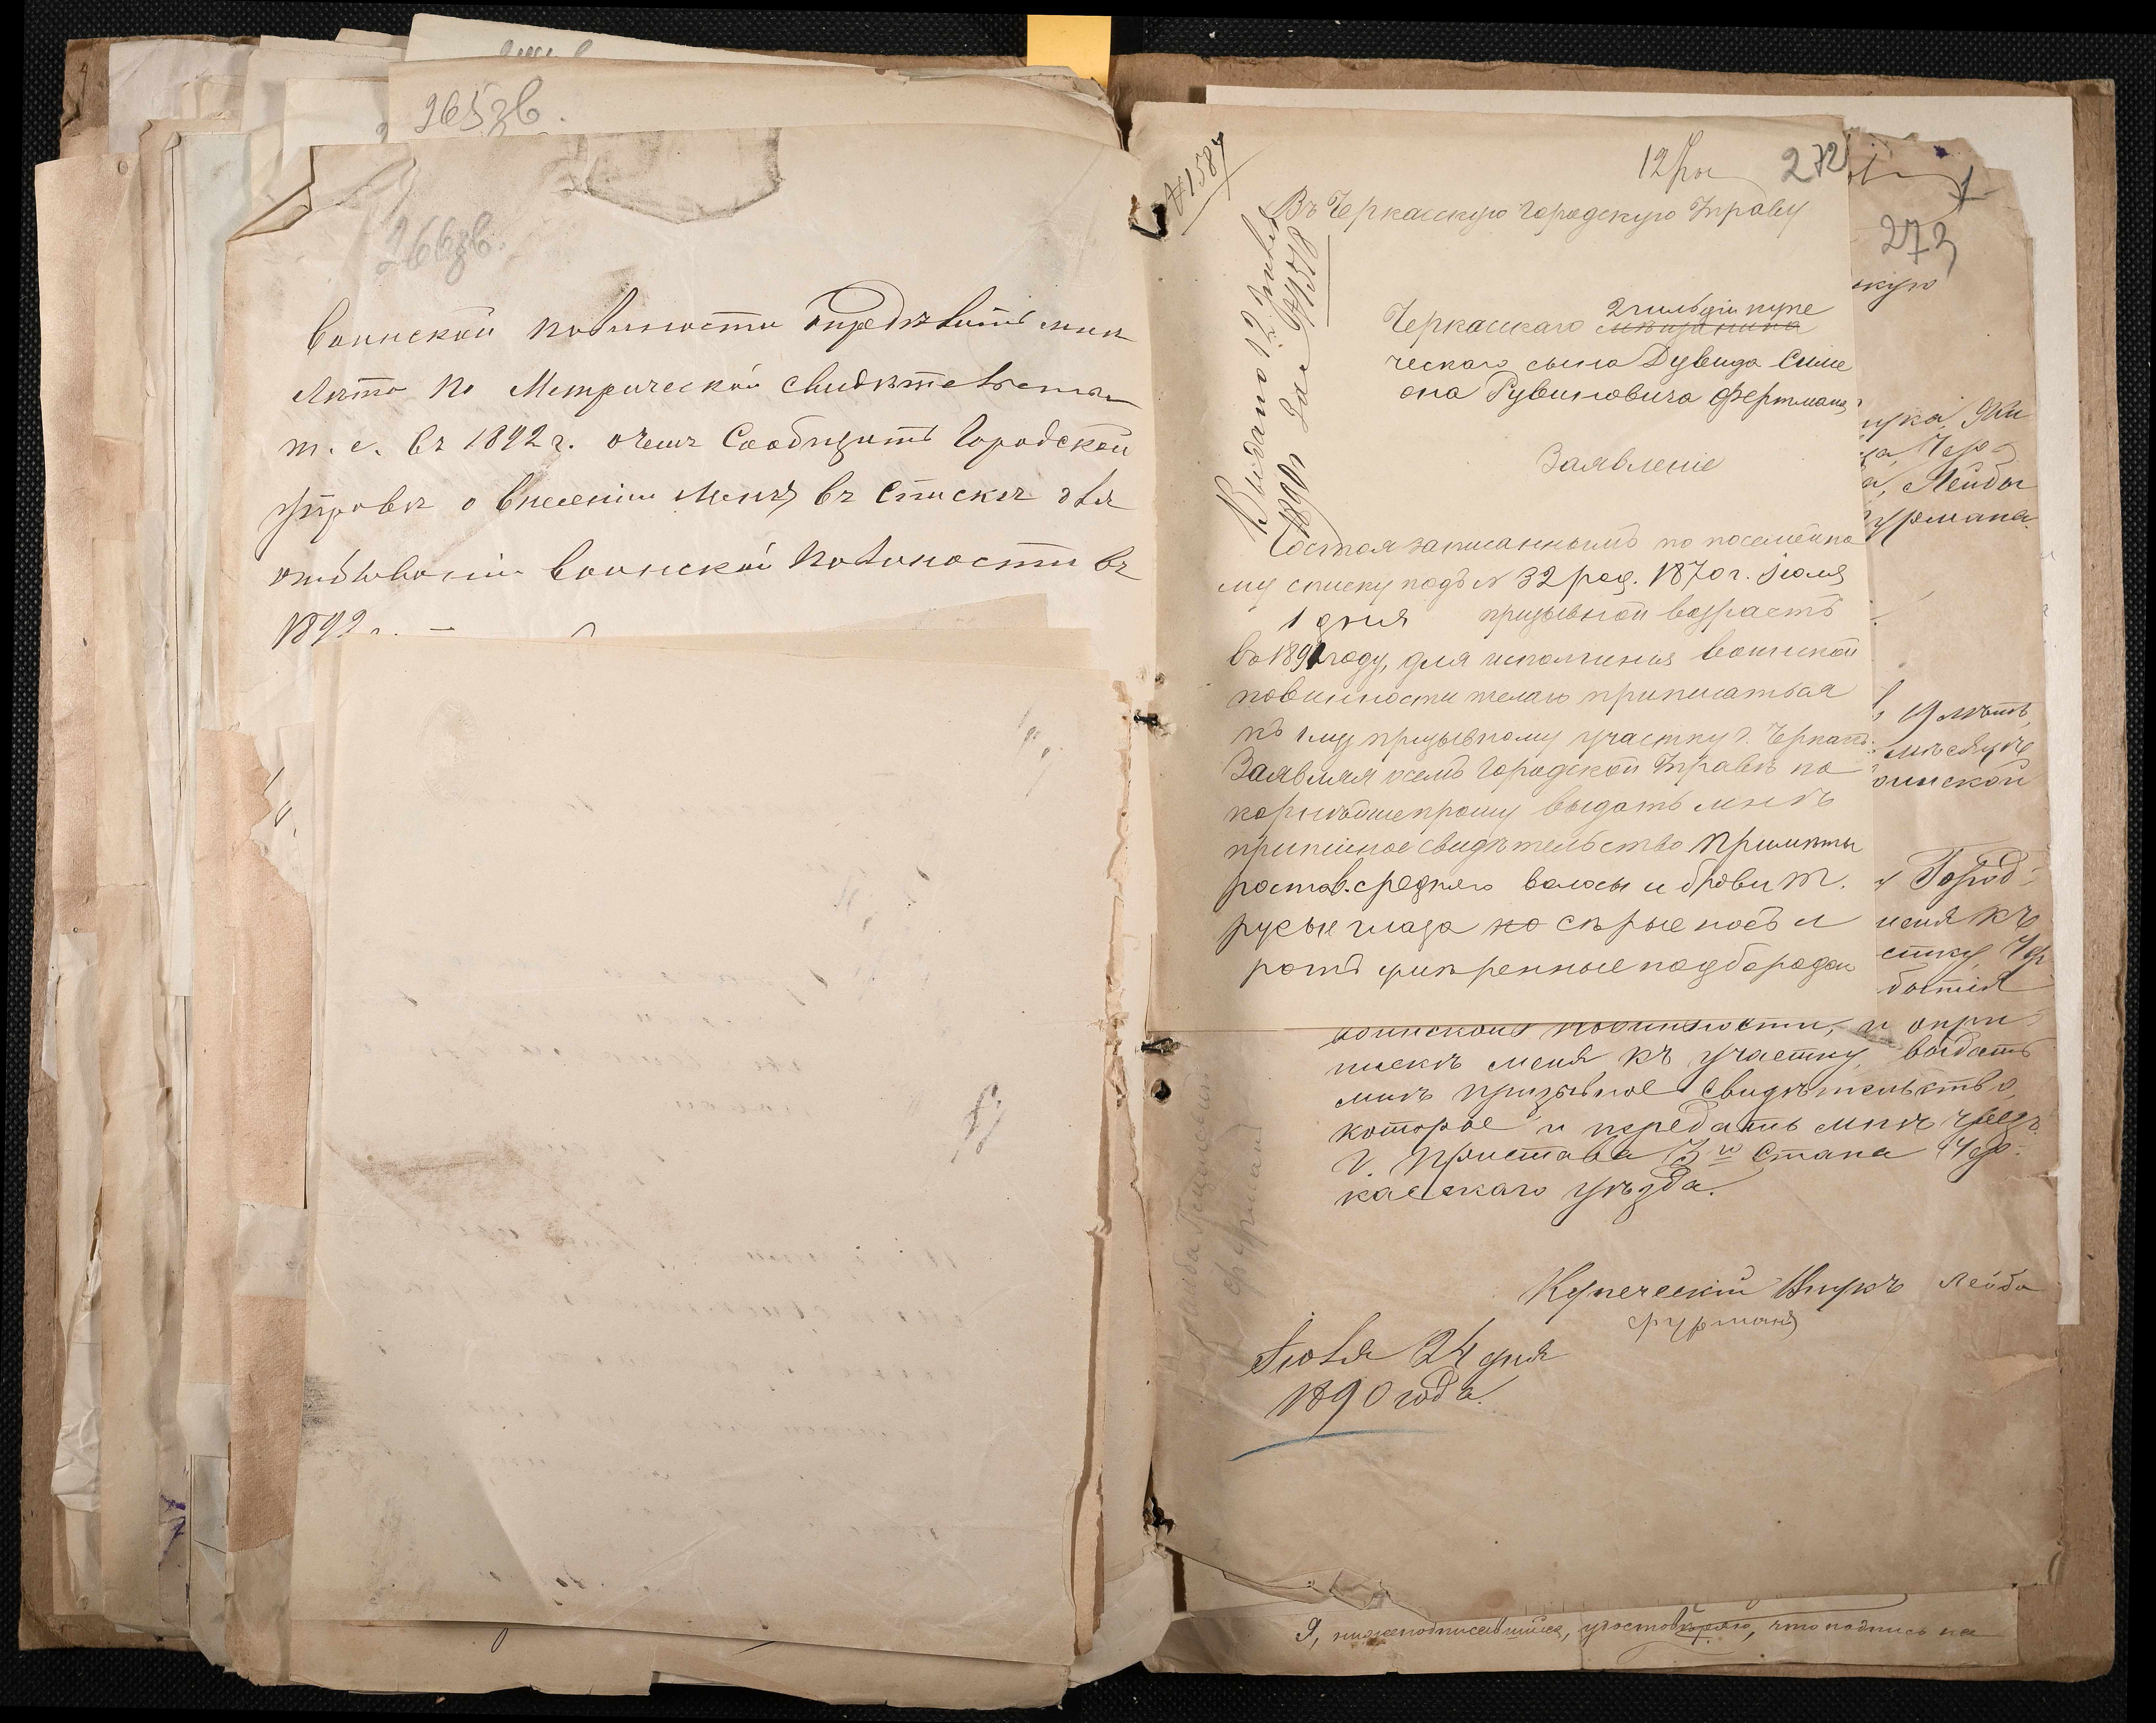 265зв.
266зв.
воинской повиности опредѣлить мнѣ
лѣта по Метрической свидѣтельства
т. е. въ 1892 г. о чемъ Сообщить Городской
Управѣ о внесеніи меня въ списокъ для
отбыванія воинской повиности въ
1892 г. —
№ 1587
12 272
Въ Черкасскую Городскую Управу
Выдано 12 1890 г. за № 1578
2 гильдіи купе
Черкасскаго мѣщанина
ческаго сына Дувида Симе
она Рувиновича Фертмана
Заявленіе
Состоя записаннымъ по посемейно
му списку подъ № 32 род. 1870 г. Іюля
1 дня призывной возрастъ
въ 1891 году, для исполненія воинской
повинности желаю приписаться
къ 1му призывному участку г. Черкассъ
Заявляя о семъ Городской Управѣ по
корнѣйше прошу выдать мнѣ
приписное свидѣтельство Примѣты
роста. средняго волосы и брови т.
русые глаза ко сѣрые носъ и
ротъ умѣренные подбородок
273
скую
Чер
Лейбы
Фурмана
19 лѣтъ,
мѣсяцѣ
воинской
Город-
меня къ
стку Чер
бытія
воинской повинности, и о при-
пискѣ меня къ участку, выдать
мнѣ призывное свидѣтельство,
которое и передать мнѣ чрезъ
Г. Пристава 3го Стана Чер-
касскаго уѣзда.
Купеческій Внукъ Лейба
Фурманъ
Іюля 24 дня
1890 года.
Я, нижеподписавшійся, удостовѣряю, что подпись на